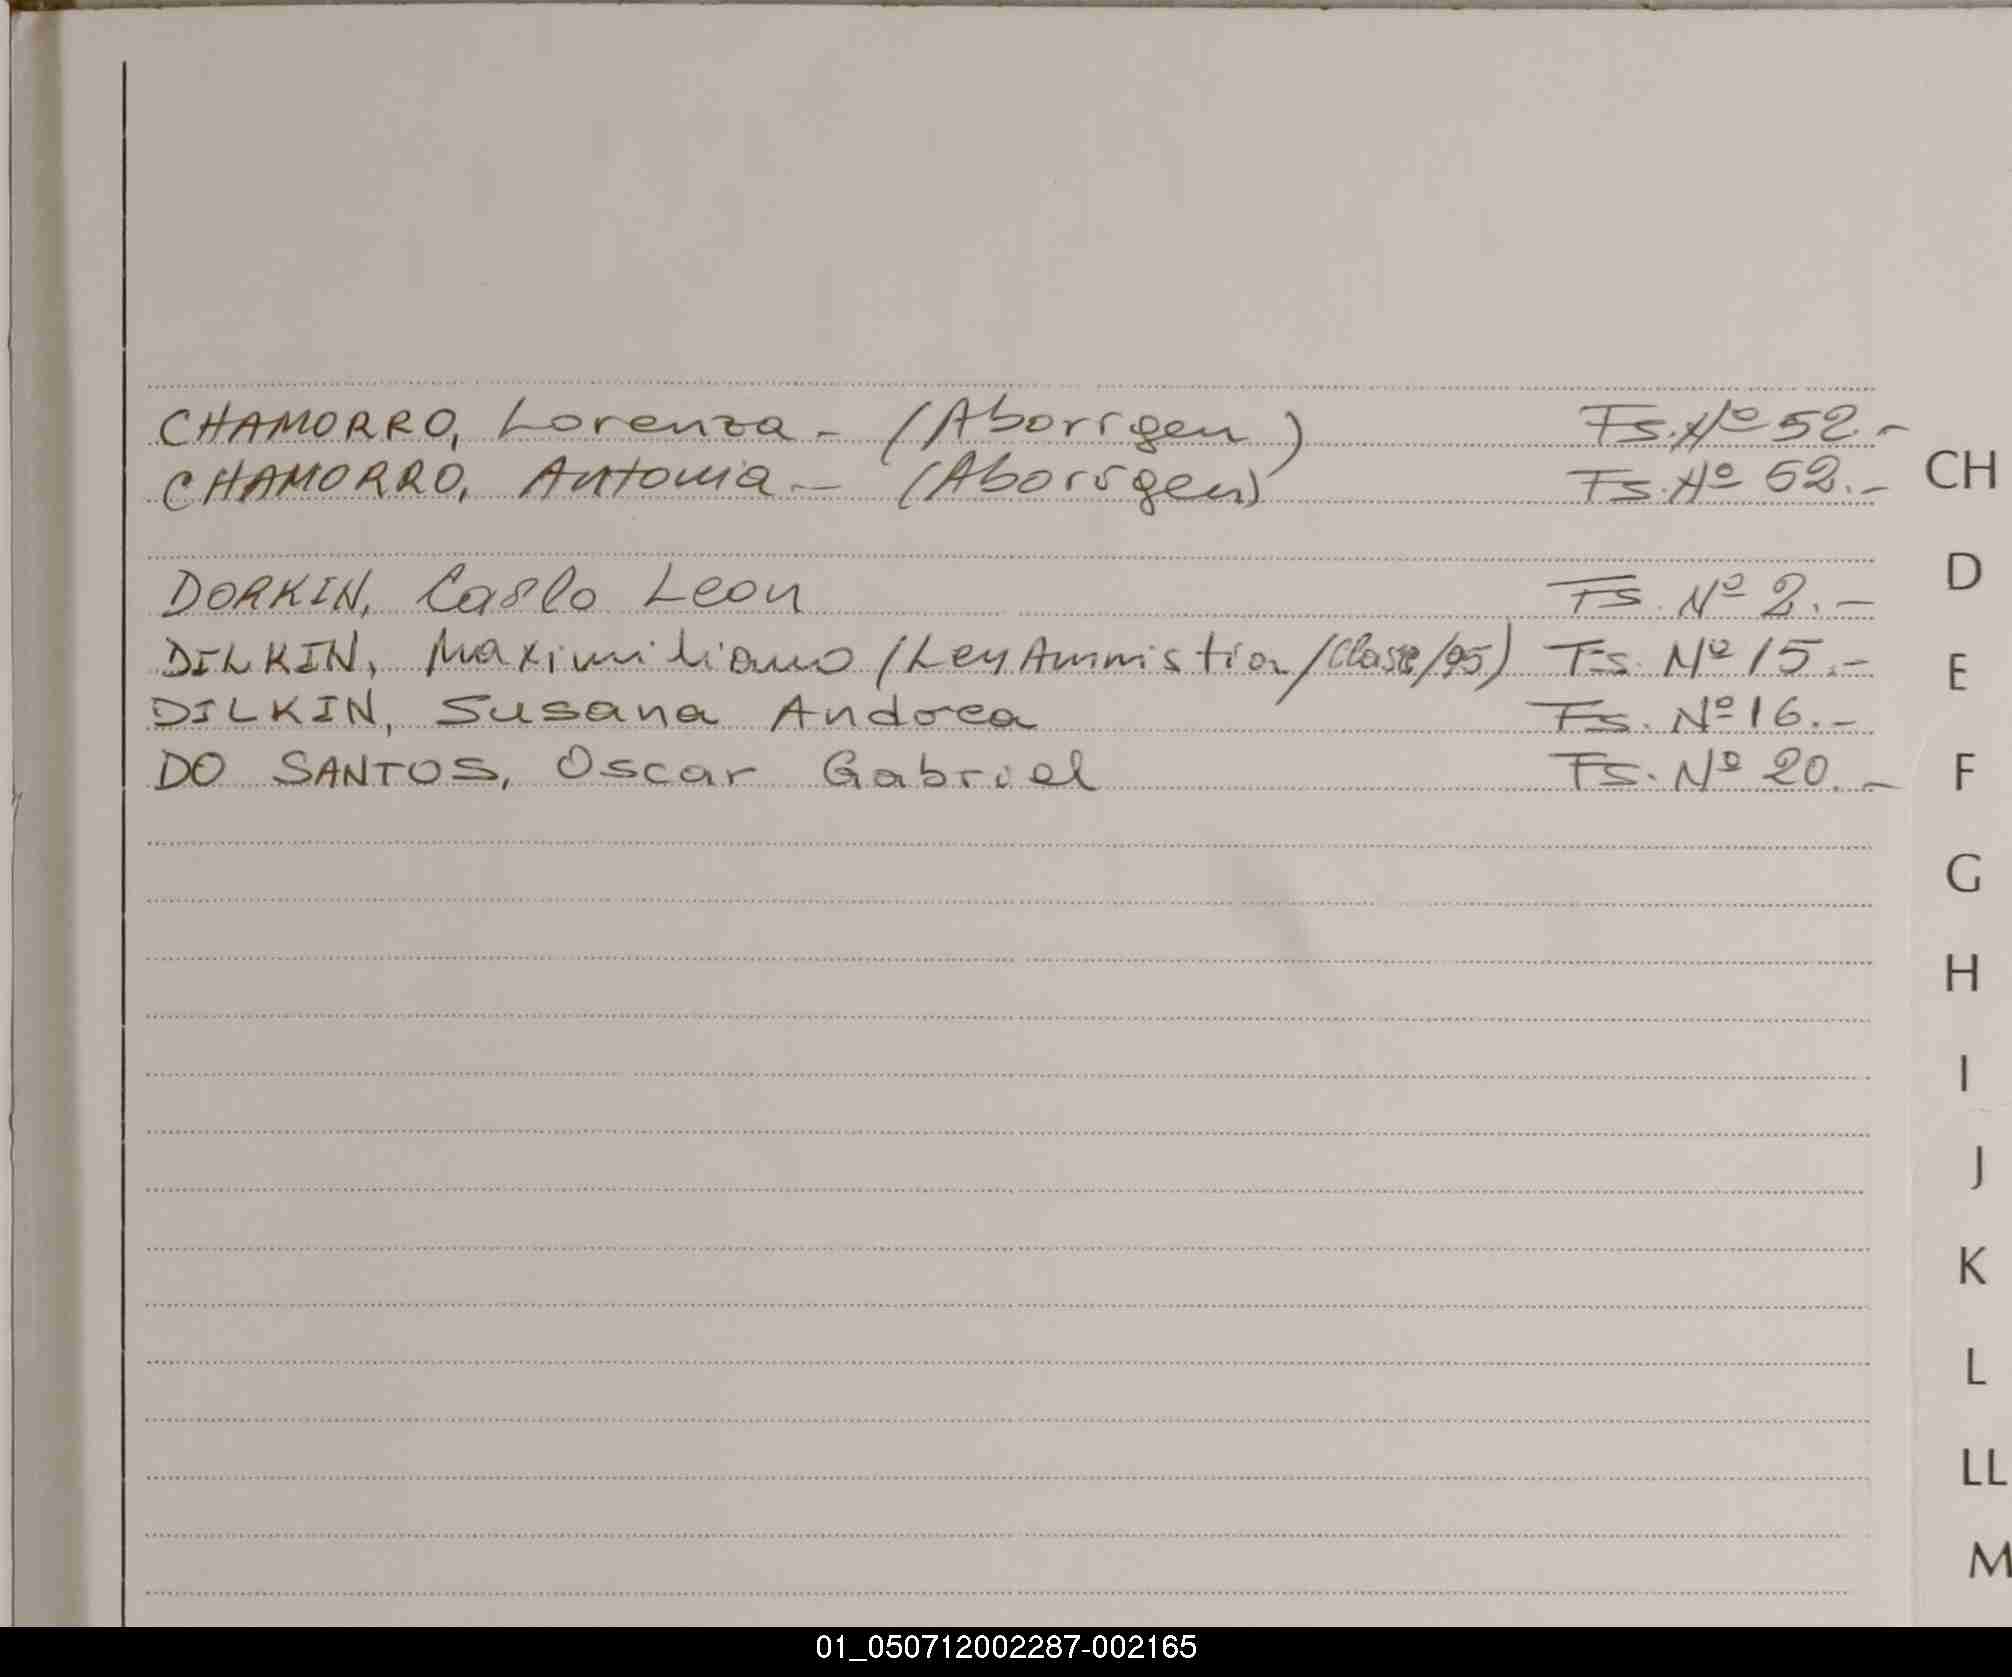 CHAMORRO, Lorenza - (Aborigen) Fs. Nº 52.-
CHAMORRO, Antonia - (Aborigen) Fs. Nº 52.-
CH
D
DORKIN, Carlo Leon Fs. Nº 2.-
DILKIN, Maximiliano (Ley Ammistia/Clase/95) Fs. Nº 15.-
E
DILKIN, Susana Andrea Fs. Nº 16.-
DO SANTOS, Oscar Gabriel Fs. Nº 20.-
F
G
H
I
J
K
L
LL
M
01_050712002287-002165